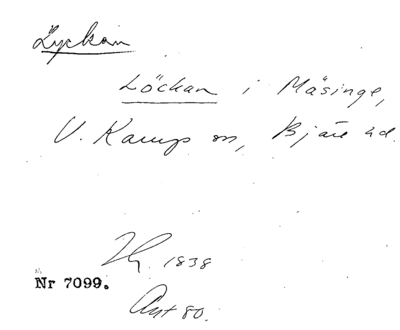 Lyckan
Löckan i Mäsinge,
V. Karup sn, Bjäre hd.
1838
Nr 7099.
Ant 80.